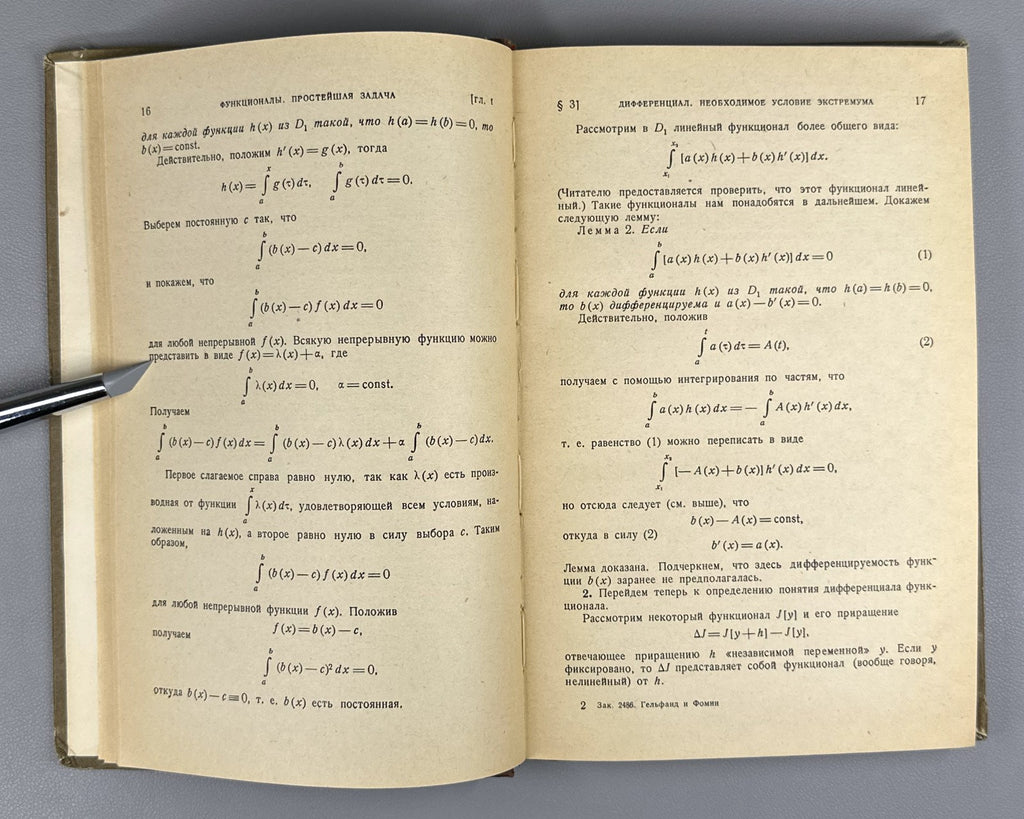 16 ФУНКЦИОНАЛЫ. ПРОСТЕЙШАЯ ЗАДАЧА [гл. 1
для каждой функции h(x) из D₁ такой, что h(a)=h(b)=0, то
b(x)=const.
Действительно, положим h′(x)=g(x), тогда
h(x)=∫ₐˣ g(τ)dτ, ∫ₐᵇ g(τ)dτ=0.
Выберем постоянную c так, что
∫ₐᵇ (b(x)−c)dx=0,
и покажем, что
∫ₐᵇ (b(x)−c)f(x)dx=0
для любой непрерывной f(x). Всякую непрерывную функцию можно
представить в виде f(x)=λ(x)+α, где
∫ₐᵇ λ(x)dx=0, α=const.
Получаем
∫ₐᵇ (b(x)−c)f(x)dx=∫ₐᵇ (b(x)−c)λ(x)dx+α∫ₐᵇ (b(x)−c)dx.
Первое слагаемое справа равно нулю, так как λ(x) есть произ-
водная от функции ∫ₐˣ λ(x)dτ, удовлетворяющей всем условиям, на-
ложенным на h(x), а второе равно нулю в силу выбора c. Таким
образом,
∫ₐᵇ (b(x)−c)f(x)dx=0
для любой непрерывной функции f(x). Положив
f(x)=b(x)−c,
получаем
∫ₐᵇ (b(x)−c)²dx=0,
откуда b(x)−c≡0, т. е. b(x) есть постоянная.
§ 3] ДИФФЕРЕНЦИАЛ. НЕОБХОДИМОЕ УСЛОВИЕ ЭКСТРЕМУМА 17
Рассмотрим в D₁ линейный функционал более общего вида:
∫_{x₁}^{x₂} [a(x)h(x)+b(x)h′(x)]dx.
(Читателю предоставляется проверить, что этот функционал линей-
ный.) Такие функционалы нам понадобятся в дальнейшем. Докажем
следующую лемму:
Лемма 2. Если
∫ₐᵇ [a(x)h(x)+b(x)h′(x)]dx=0 (1)
для каждой функции h(x) из D₁ такой, что h(a)=h(b)=0,
то b(x) дифференцируема и a(x)−b′(x)=0.
Действительно, положив
∫ₐᵗ a(τ)dτ=A(t), (2)
получаем с помощью интегрирования по частям, что
∫ₐᵇ a(x)h(x)dx=−∫ₐᵇ A(x)h′(x)dx,
т. е. равенство (1) можно переписать в виде
∫_{x₁}^{x₂} [−A(x)+b(x)]h′(x)dx=0,
но отсюда следует (см. выше), что
b(x)−A(x)=const,
откуда в силу (2)
b′(x)=a(x).
Лемма доказана. Подчеркнем, что здесь дифференцируемость функ-
ции b(x) заранее не предполагалась.
2. Перейдем теперь к определению понятия дифференциала функ-
ционала.
Рассмотрим некоторый функционал J[y] и его приращение
ΔJ=J[y+h]−J[y],
отвечающее приращению h «независимой переменной» y. Если y
фиксировано, то ΔJ представляет собой функционал (вообще говоря,
нелинейный) от h.
2 Зак. 2486. Гельфанд и Фомин